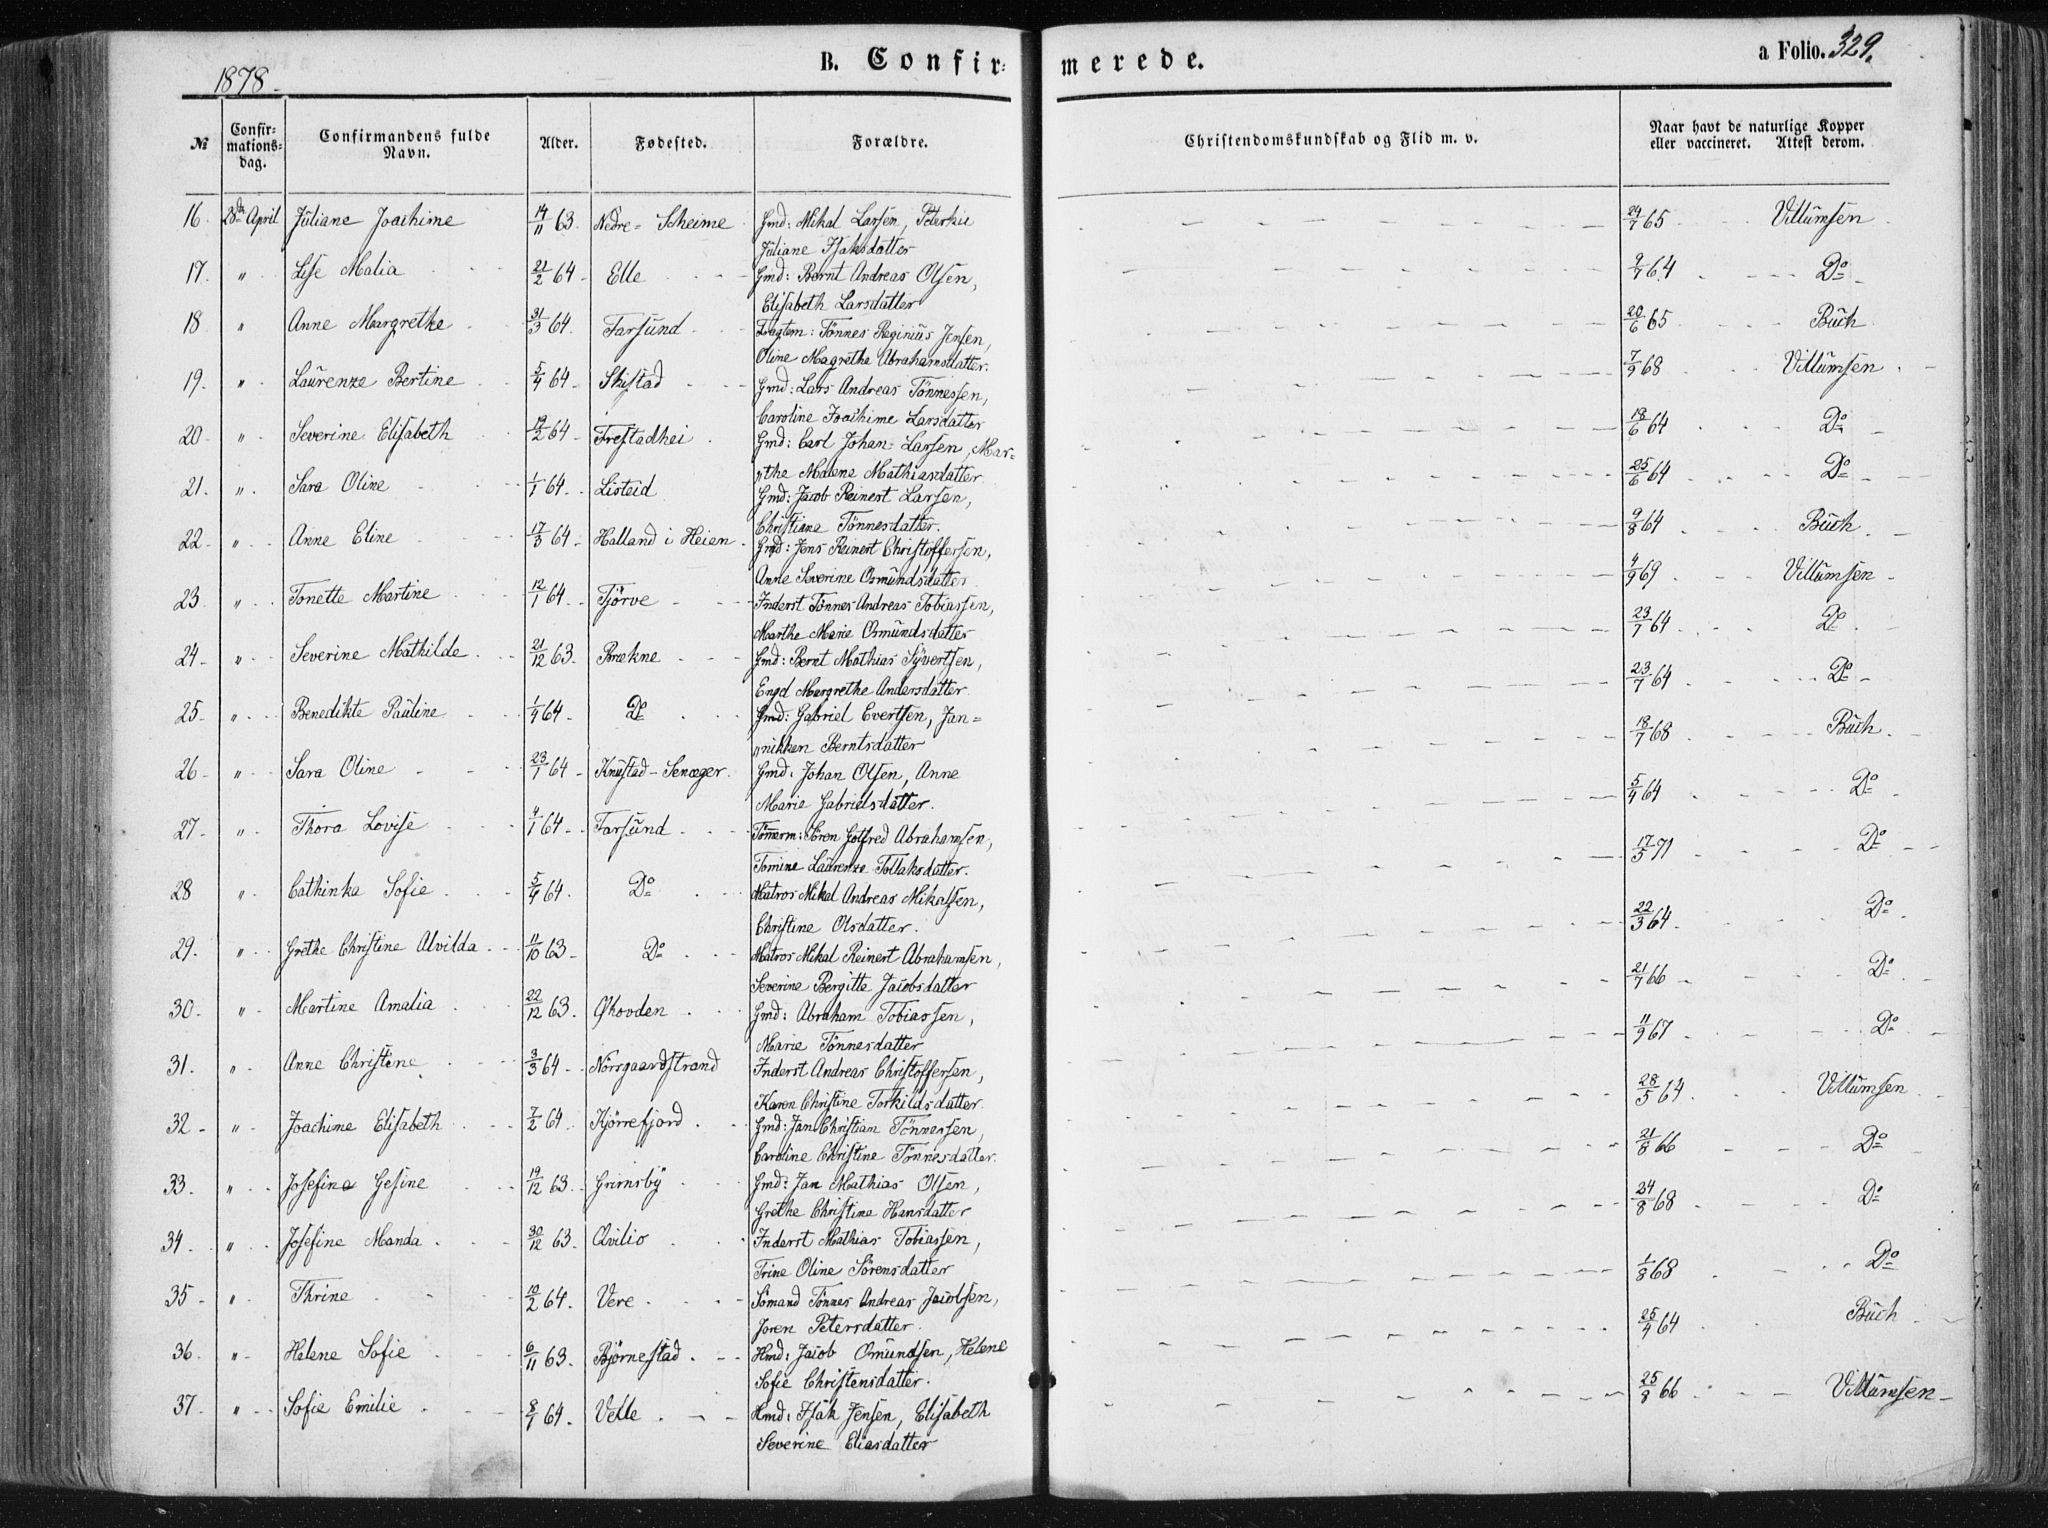 1878.
B. Confir-
merede.
a Folio. 329.
№
Confir-
mations-
dag.
Confirmandens fulde
Navn.
Alder.
Fødested.
Forældre.
Christendomskundskab og Flid m. v.
Naar havt de naturlige Kopper
eller vaccineret. Attest derom.
16. 28de April Juliane Joachime 14/11 63. Nedre-Scheime Gmd: Mikal Larsen, 24/7 65 Villumsen
Juliane Isaksdatter
17. " Lise Malia 21/2 64 Elle Gmd: Bernt Andreas Olsen, 9/7 64 Do
Elisabeth Larsdatter
18 " Anne Margrethe 31/3 64. Farsund Tønnes Reginius Jensen, 20/6 65 Buch
Oline Magrethe Abrahamsdatter.
19. " Laurenze Bertine 5/4 64 Skistad Gmd: Lars Andreas Tønnessen, 7/9 68 Villumsen
Caroline Joachime Larsdatter
20 " Severine Elisabeth 64 Frestadhei Gmd: Carl Johan Larsen, Mar= 18/6 64 Do
"the Malene Mathiasdatter
21. " Sara Oline 1/1 64. Listeid Gmd: Jacob Reinert Larsen, 25/6 64 Do
Christiane Tønnesdatter.
22. " Anne Eline 17/3 64 Halland i Heien Gmd: Jens Reinert Christoffersen, 9/8 64 Buch
Anne Severine Osmundsdatter
23. " Tonette Martine 12/1 64. Tjørve Inderst Tønnes Andreas Tobiassen, 4/9 69 Villumsen
Marthe Marie Osmundsdatter
24 " Severine Mathilde 21/12 63. Brekne Gmd: Bernt Mathias Syvertsen, 23/7 64 Do
Engel Margrethe Andersdatter
25 " Benedikte Pauline 64. Do Gmd: Gabriel Evertsen, Jan= 23/7 64 Do
"nikken Berntsdatter
26 " Sara Oline 23/1 64 Knustad-Senæger. Gmd: Johan Olsen, Anne 18/7 68 Buch
Marie Gabrielsdatter.
27 " Thora Lovise 4/1 64 Farsund Tømmerm: Søren Gotfred Abrahamsen, 5/4 64 Do
Tomine Laurenze Tollaksdatter.
28 " Cathinka Sofie 5/4 64. Do Matros Mikal Andreas Mikalsen, 17/5 71 Do
Christine Olsdatter.
29. " Grethe Christine Alvilda 11/10 63 Do Matros Mikal Reinert Abrahamsen, 22/3 64 Do
Severine Bergitte Jacobsdatter
30. " Martine Amalia 22/12 63. Øhovden Gmd: Abraham Tobiassen, 21/7 66 Do
Marie Tønnesdatter
31. " Anne Christene 3/3 64 Norsgaardstrand Inderst Andreas Christoffersen, 11/9 67 Do
Karen Christine Torkildsdatter.
32 " Joachime Elisabeth 7/2 64. Kjørrefjord Gmd: Jan Christian Tønnessen, 28/5 64 Villumsen
Caroline Christine Tønnesdatter.
33. " Josefine Gesine 19/12 63. Grimsby Gmd: Jan Mathias Olsen, 21/8 66 Do
Grethe Christine Hansdatter
34. " Josefine Manda 30/12 63. Qvilio Inderst Mathias Tobiassen, 24/8 68 Do
Trine Oline Sørensdatter
35 " Thrine 10/2 64. Vere Sømand Tønnes Andreas Jacobsen, 1/8 68 Do
Joren Petersdatter.
36 " Helene Sofie 6/11 63. Bjørnestad Hmd: Jacob Osmundsen, Helene 25/4 64 Buch
Sofie Christensdatter.
37. " Sofie Emilie 8/1 64. Velle Hmd: Isak Jensen, Elisabeth 25/8 66 Villumsen
Severine Eliasdatter